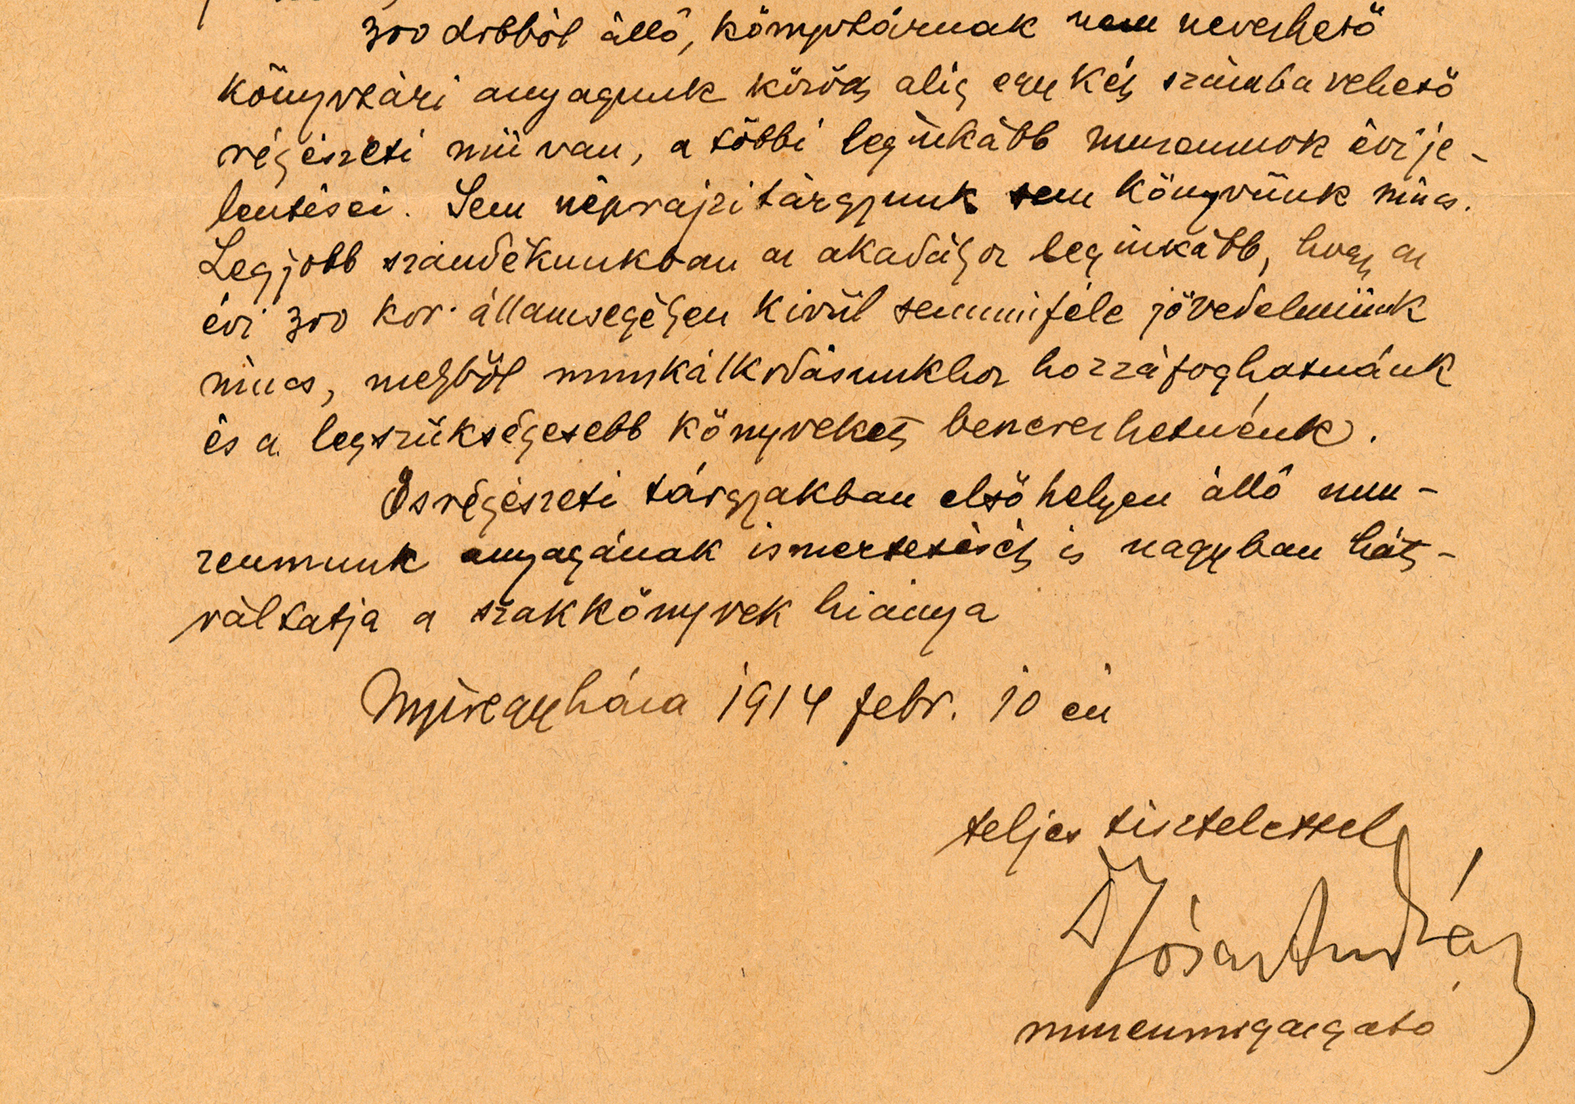 300 dobból álló, könyvtárnak nem nevezhető
könyvtári anyagunk között alig egy két számba vehető
régészeti mü van, a többi leginkább muzeumok évi je-
lentései. Sem néprajzi tárgyunk sem könyvünk nincs.
Legjobb szándékunkban az akadályoz leginkább, hogy az
évi 300 kor. államsegélyen kivül semmiféle jövedelmünk
nincs, melyböl munkálkodásunkhoz hozzáfoghatnánk
és a legszükségesebb könyveket beszerezhetnénk.
Ősrégészeti tárgyakban első helyen álló mu-
zeumunk anyagának ismertetését is nagyban hát-
ráltatja a szakkönyvek hiánya
Nyiregyháza 1914 febr. 10 én
teljes tisztelettel
Dr Jósa András
muzeumigazgató